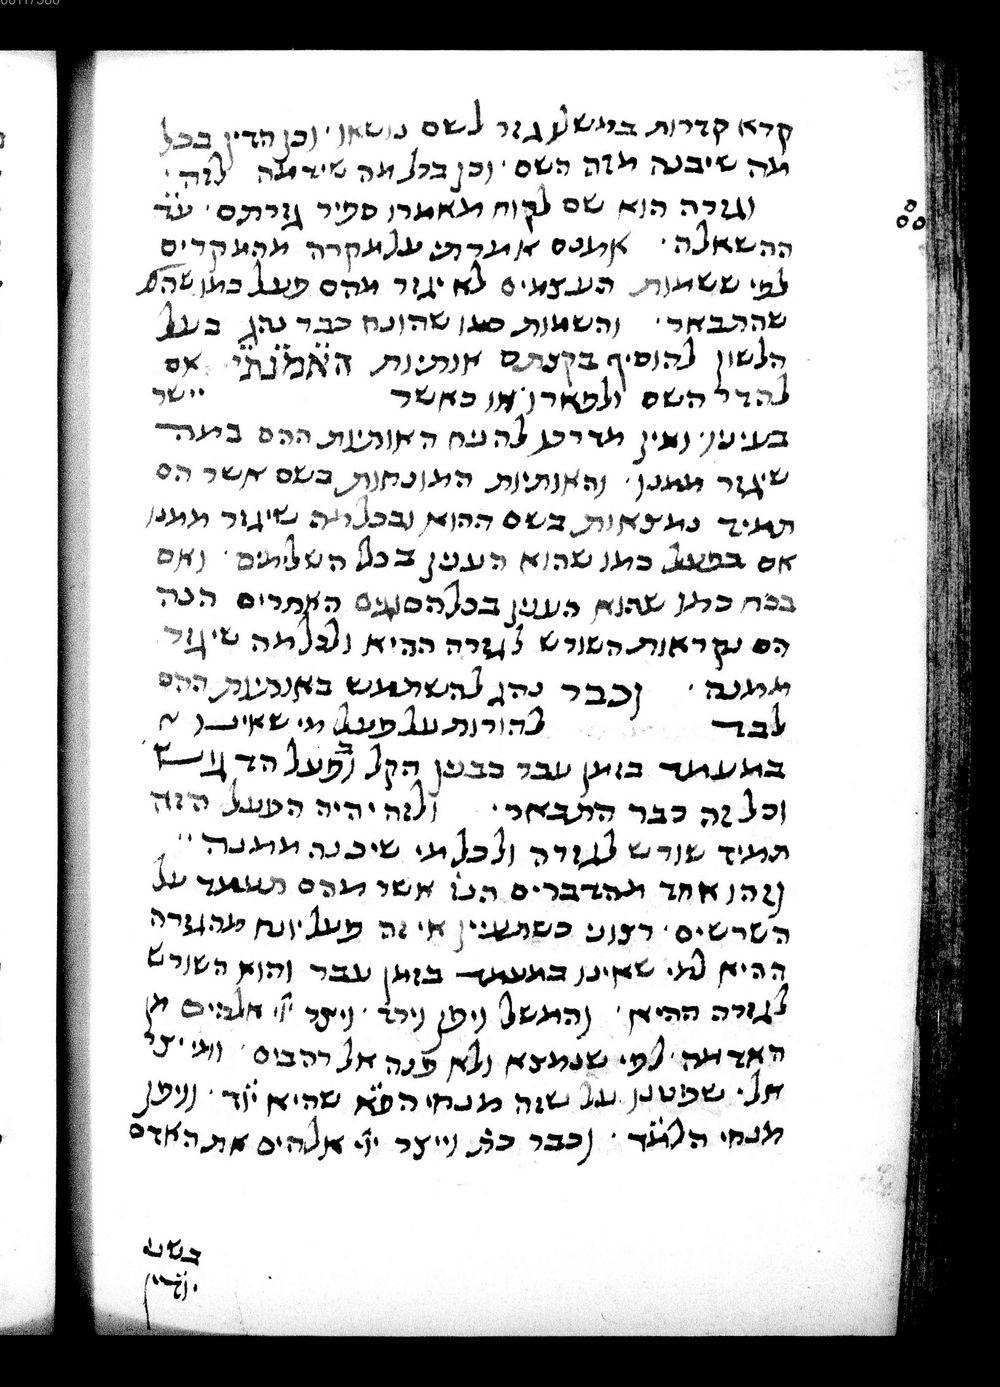 קרא קדרות במשל נגזר לשם נושאו׳ וכן הדין בכל
מה שיבנה מזה השם׳ וכן בכל מה שידמה לזה׳
וגזרה הוא שם לקוח מאמרו ספיר גזרתם׳ עד
ההשאלה׳ אמנם אמרתי על מקרה מהמקרים
לפי ששמות העצמים לא יגזר מהם פועל כמו
שהתבאר׳ והשמות כמו שהונח כבר נהג בעל
הלשון להוסיף בקצתם אותיות האמנתי אם
להדר השם ולפארו או כאשר יישר
בעיניו׳ ואין מדרכו להניח האותיות ההם במה
שיגזר ממנו׳ והאותיות המונחות בשם אשר הם
תמיד נמצאות בשם ההוא ובכל מה שיגזר ממנו
אם בפועל כמו שהוא הענין בכל השלמים׳ ואם
בכח כמו שהוא הענין בכל הסוגים האחרים הנה
הם נקראות השורש לגזרה ההיא ולכל מה שיגזר
ממנה׳ וכבר נהג להשתמש באותיות ההם
לבד להורות על פועל מי שאינו
במעמד בזמן עבר כבנין הקל ובפעל הדגוש
וכל זה כבר התבאר׳ ולזה יהיה הפועל הזה
תמיד שורש לגזרה ולכל מי שיבנה ממנה
וזהו אחד מהדברים הנו׳ אשר מהם תעמד על
השרשים׳ רצוני כשתעיין אי זה פועל יונח מהגזרה
ההיא למי שאינו במעמד בזמן עבר והוא השורש
לגזרה ההיא׳ והמשל ויפן וירד׳ ויצר יי׳ אלהים מן
האדמה׳ לפי שנמצא ולא פנה אל רהבים׳ ומי יצר
אל׳ שפטנו על שזה מנחי הפא שהיא יוד׳ וויפן
מנחי הלמד׳ וכבר כת׳ וייצר יי׳ אלהים את האדם
בשני
יודין